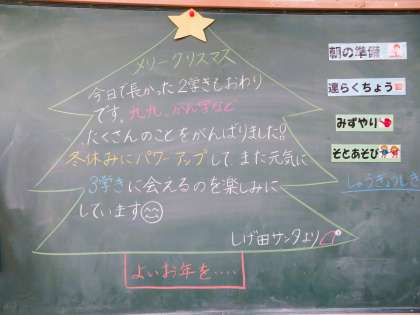 メリークリスマス
今日で長かった2学きもおわり
です。九九、かん字など
たくさんのことをがんばりました!!
冬休みにパワーアップして また元気に
3学きに会えるのを楽しみに
しています
しげ田サンタより
よいお年を‥‥
朝の準備
連らくちょう
みずやり
そとあそび
しゅうぎょうしき